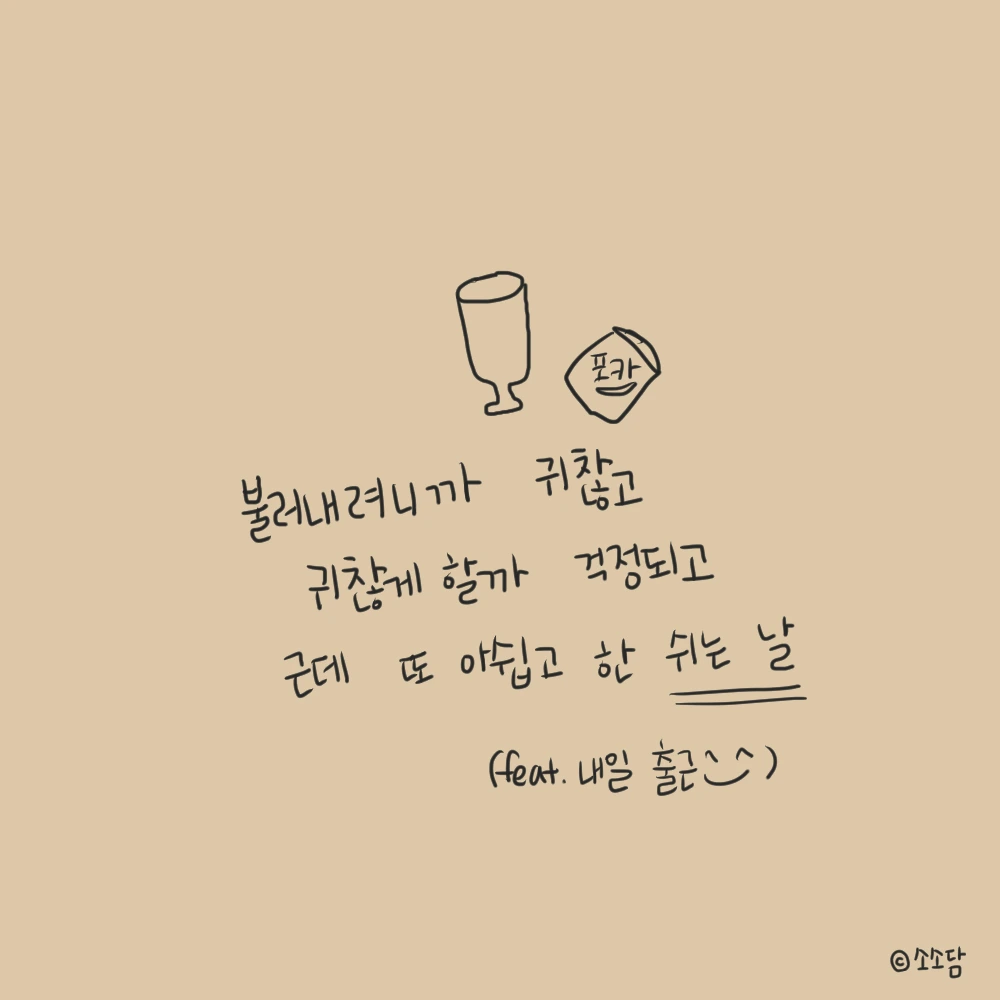 포카
불러내려니까 귀찮고
귀찮게 할까 걱정되고
근데 또 아쉽고 한 쉬는 날
(feat. 내일 출근^^)
©소소담